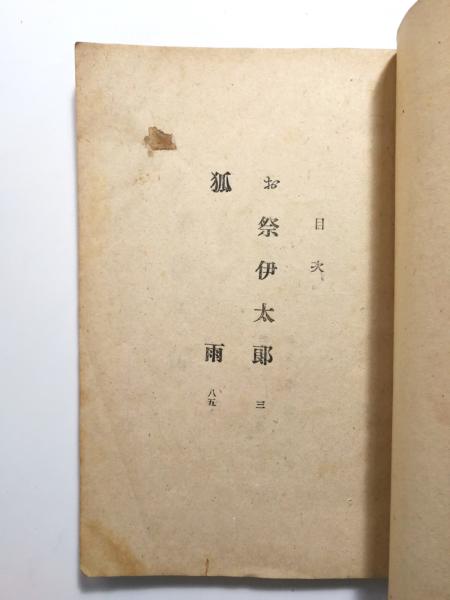 目次
お祭伊太郎 三
狐雨 八五